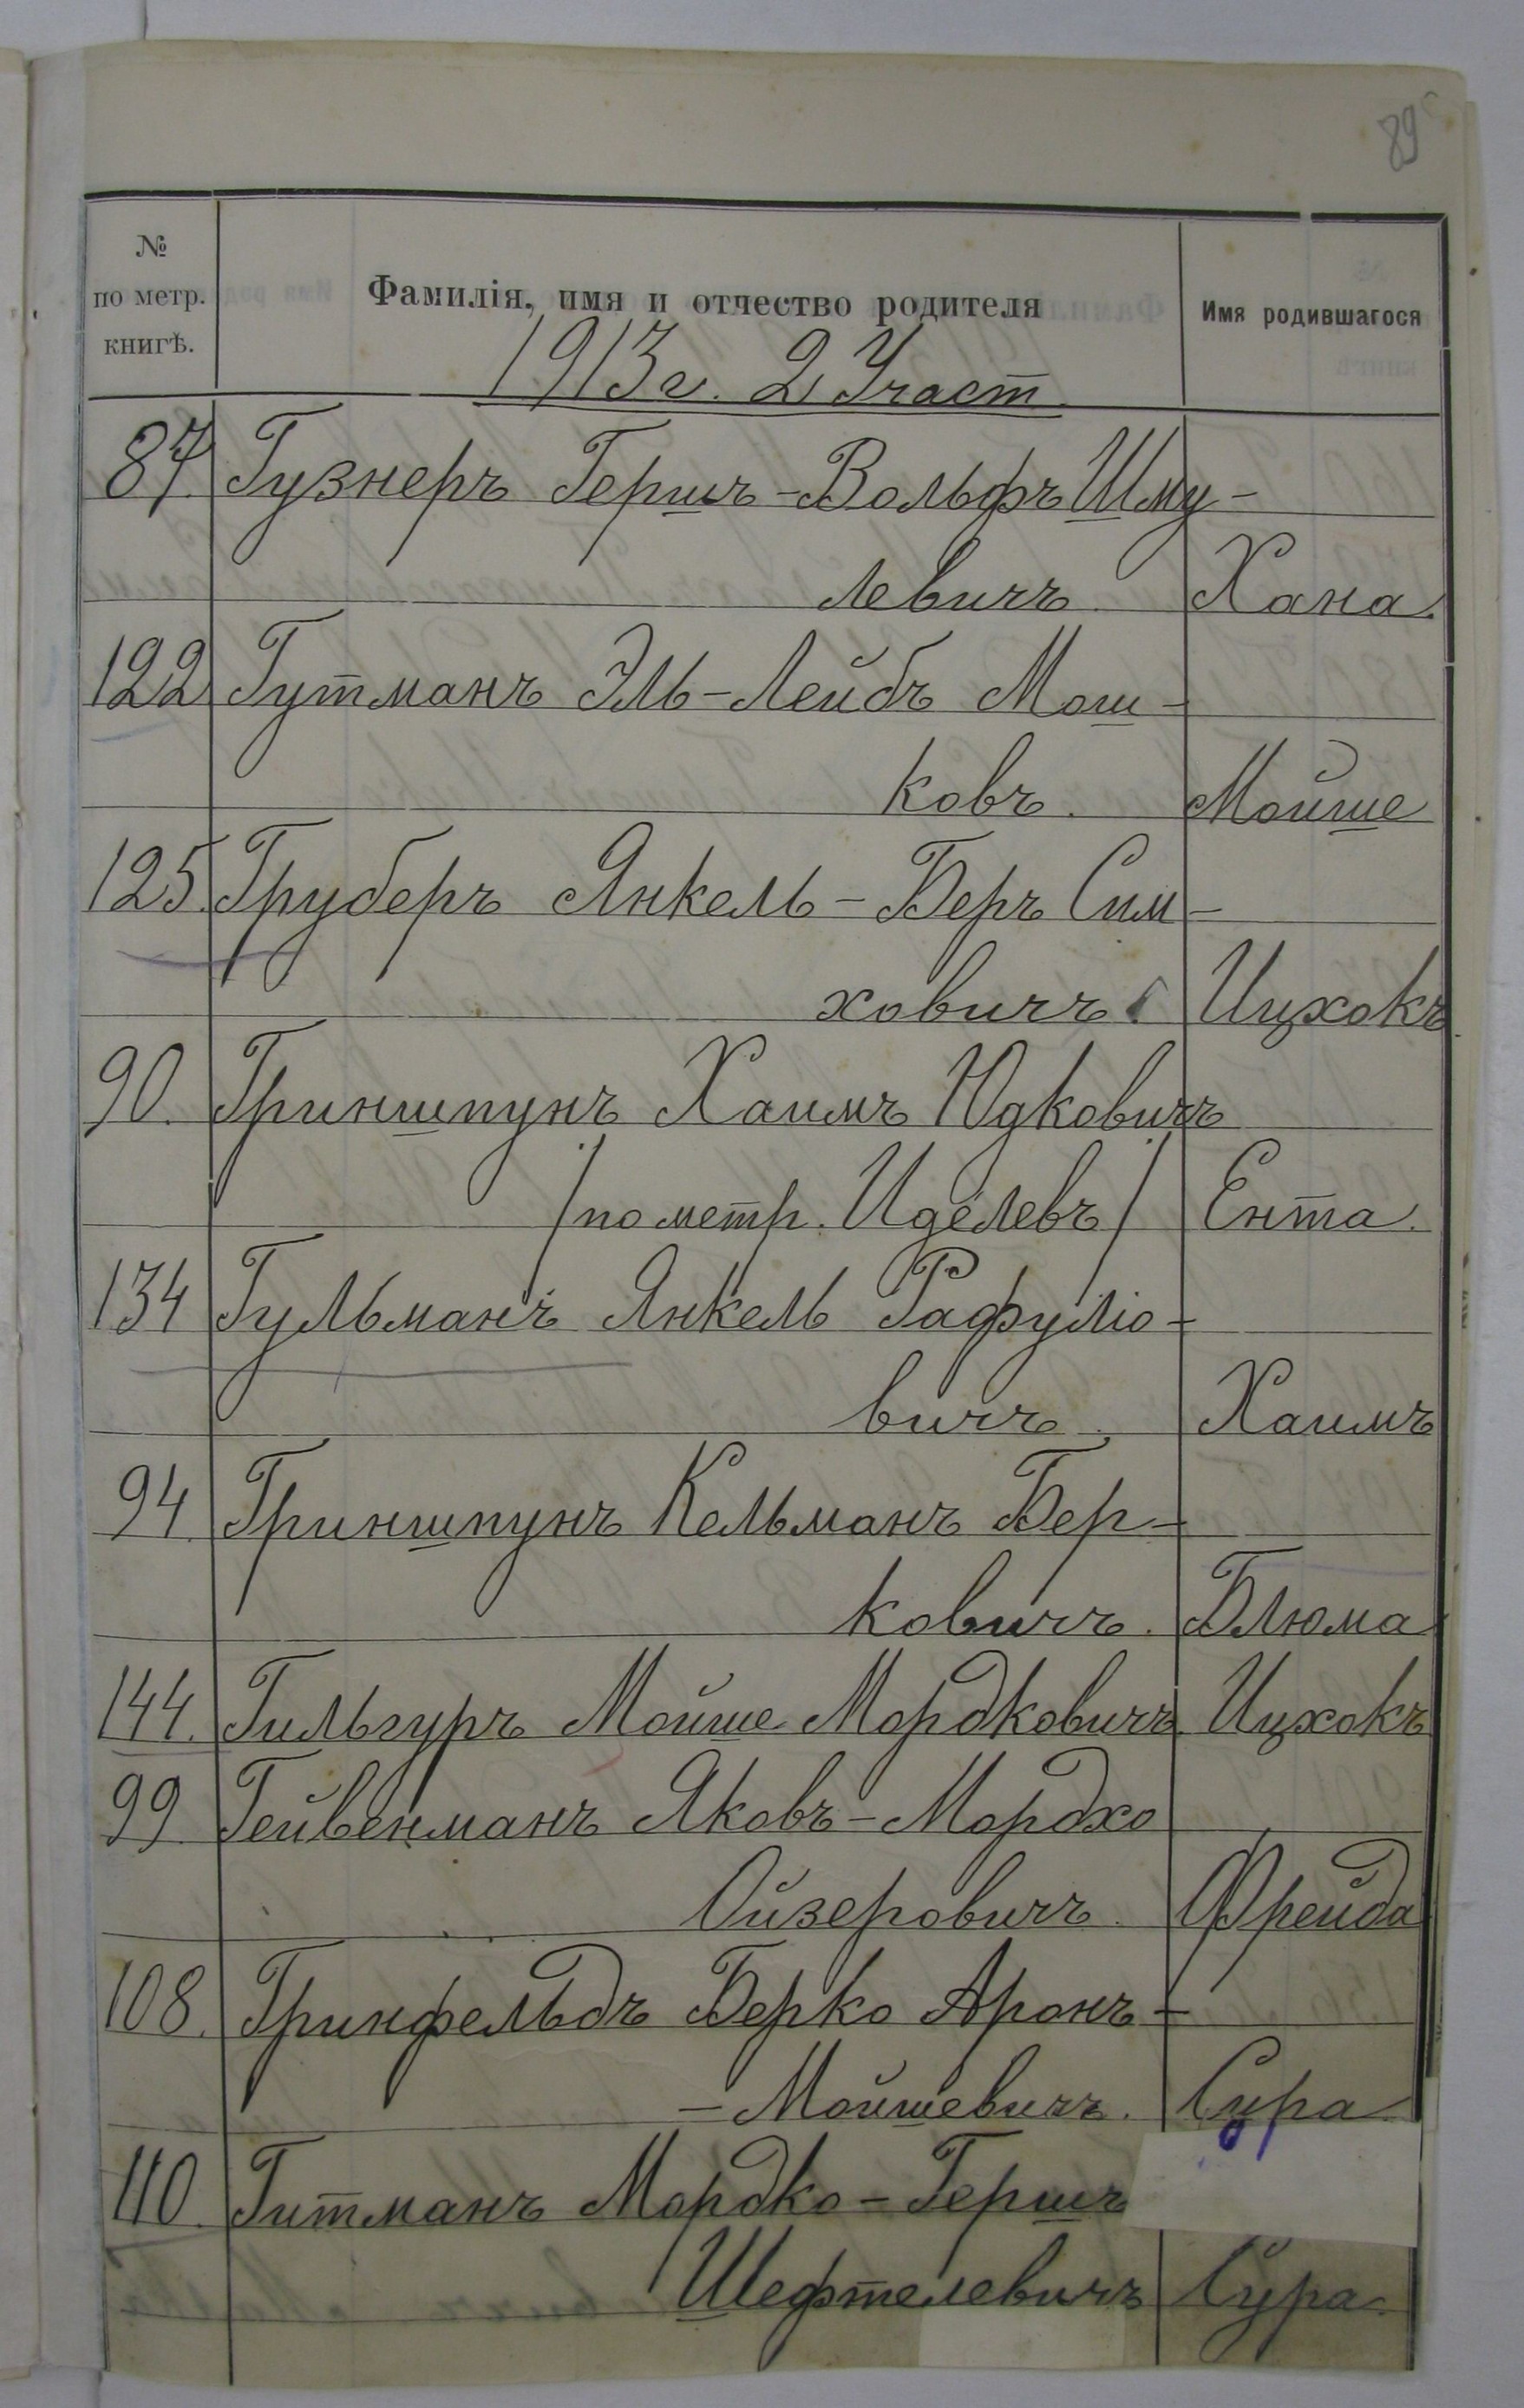 89
№ по метр. книгѣ.
Фамилія, имя и отчество родителя
Имя родившагося
1913 г. 2 Участ.
87. Гузнеръ Гершъ-Вольфъ Шму-
левичъ. Хана.
122 Гутманъ Эль-Лейбъ Мош-
ковъ. Мойше
125. Груберъ Янкель-Беръ Сим-
ховичъ. Ицхокъ
90. Гриншпунъ Хаимъ Юдковичъ
/по метр. Иделевъ/ Ента.
134 Гульманъ Янкель Рафуліо-
вичъ. Хаимъ
94. Гриншпунъ Кельманъ Бер-
ковичъ. Блюма
144. Гильгуръ Мойше Мордковичъ Ицхокъ
99. Гейвенманъ Яковъ-Мордхо
Ойзеровичъ. Фрейда
108. Гринфельдъ Берко Аронъ-
-Мойшевичъ. Сура
110. Гитманъ Мордко-Гершъ
Шефтелевичъ Сура.